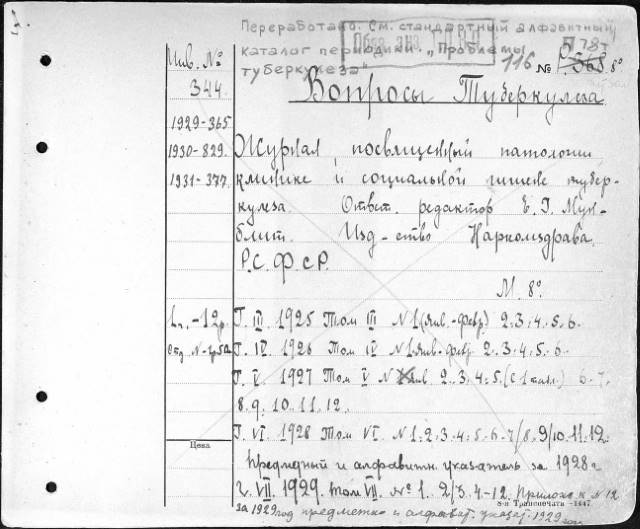 Переработано. См. стандартный алфавитный
каталог периодики. „Проблемы
туберкулеза"
116 № P.568. 8°
5178
Инв. №
344.
Вопросы Туберкулеза
1929-365
1930-829.
1931-377.
Журнал, посвященный патологии
клинике и социальной гигиене тубер-
кулеза. Ответ. редактор Е. Г. Мун-
блит. Изд-ство Наркомздрава
Р.С.Ф.С.Р.
М. 8°.
1 п. - 12 р.
Г. III. 1925 Том III N 1 (янв.-февр.) 2.3.4.5.6.
Отд. N-
Г. IV. 1926 Том IV N 1 янв.-февр 2.3.4.5.6.
Г. V. 1927 Том V N янв 2.3.4.5. 6.7.
8.9.10.11.12.
Г. VI. 1928 Том VI. N 1.2.3.4.5.6.7/8.9/10.11.12.
Цена
Предметный и алфавитн. указатель за 1928 г
Г. VII. 1929. Том VII. № 1. 2/3. 4-12. Прилож. к N 12
8-я Транспечати -1647
за 1929 год предметн. и алфавит. указат. 1929 года